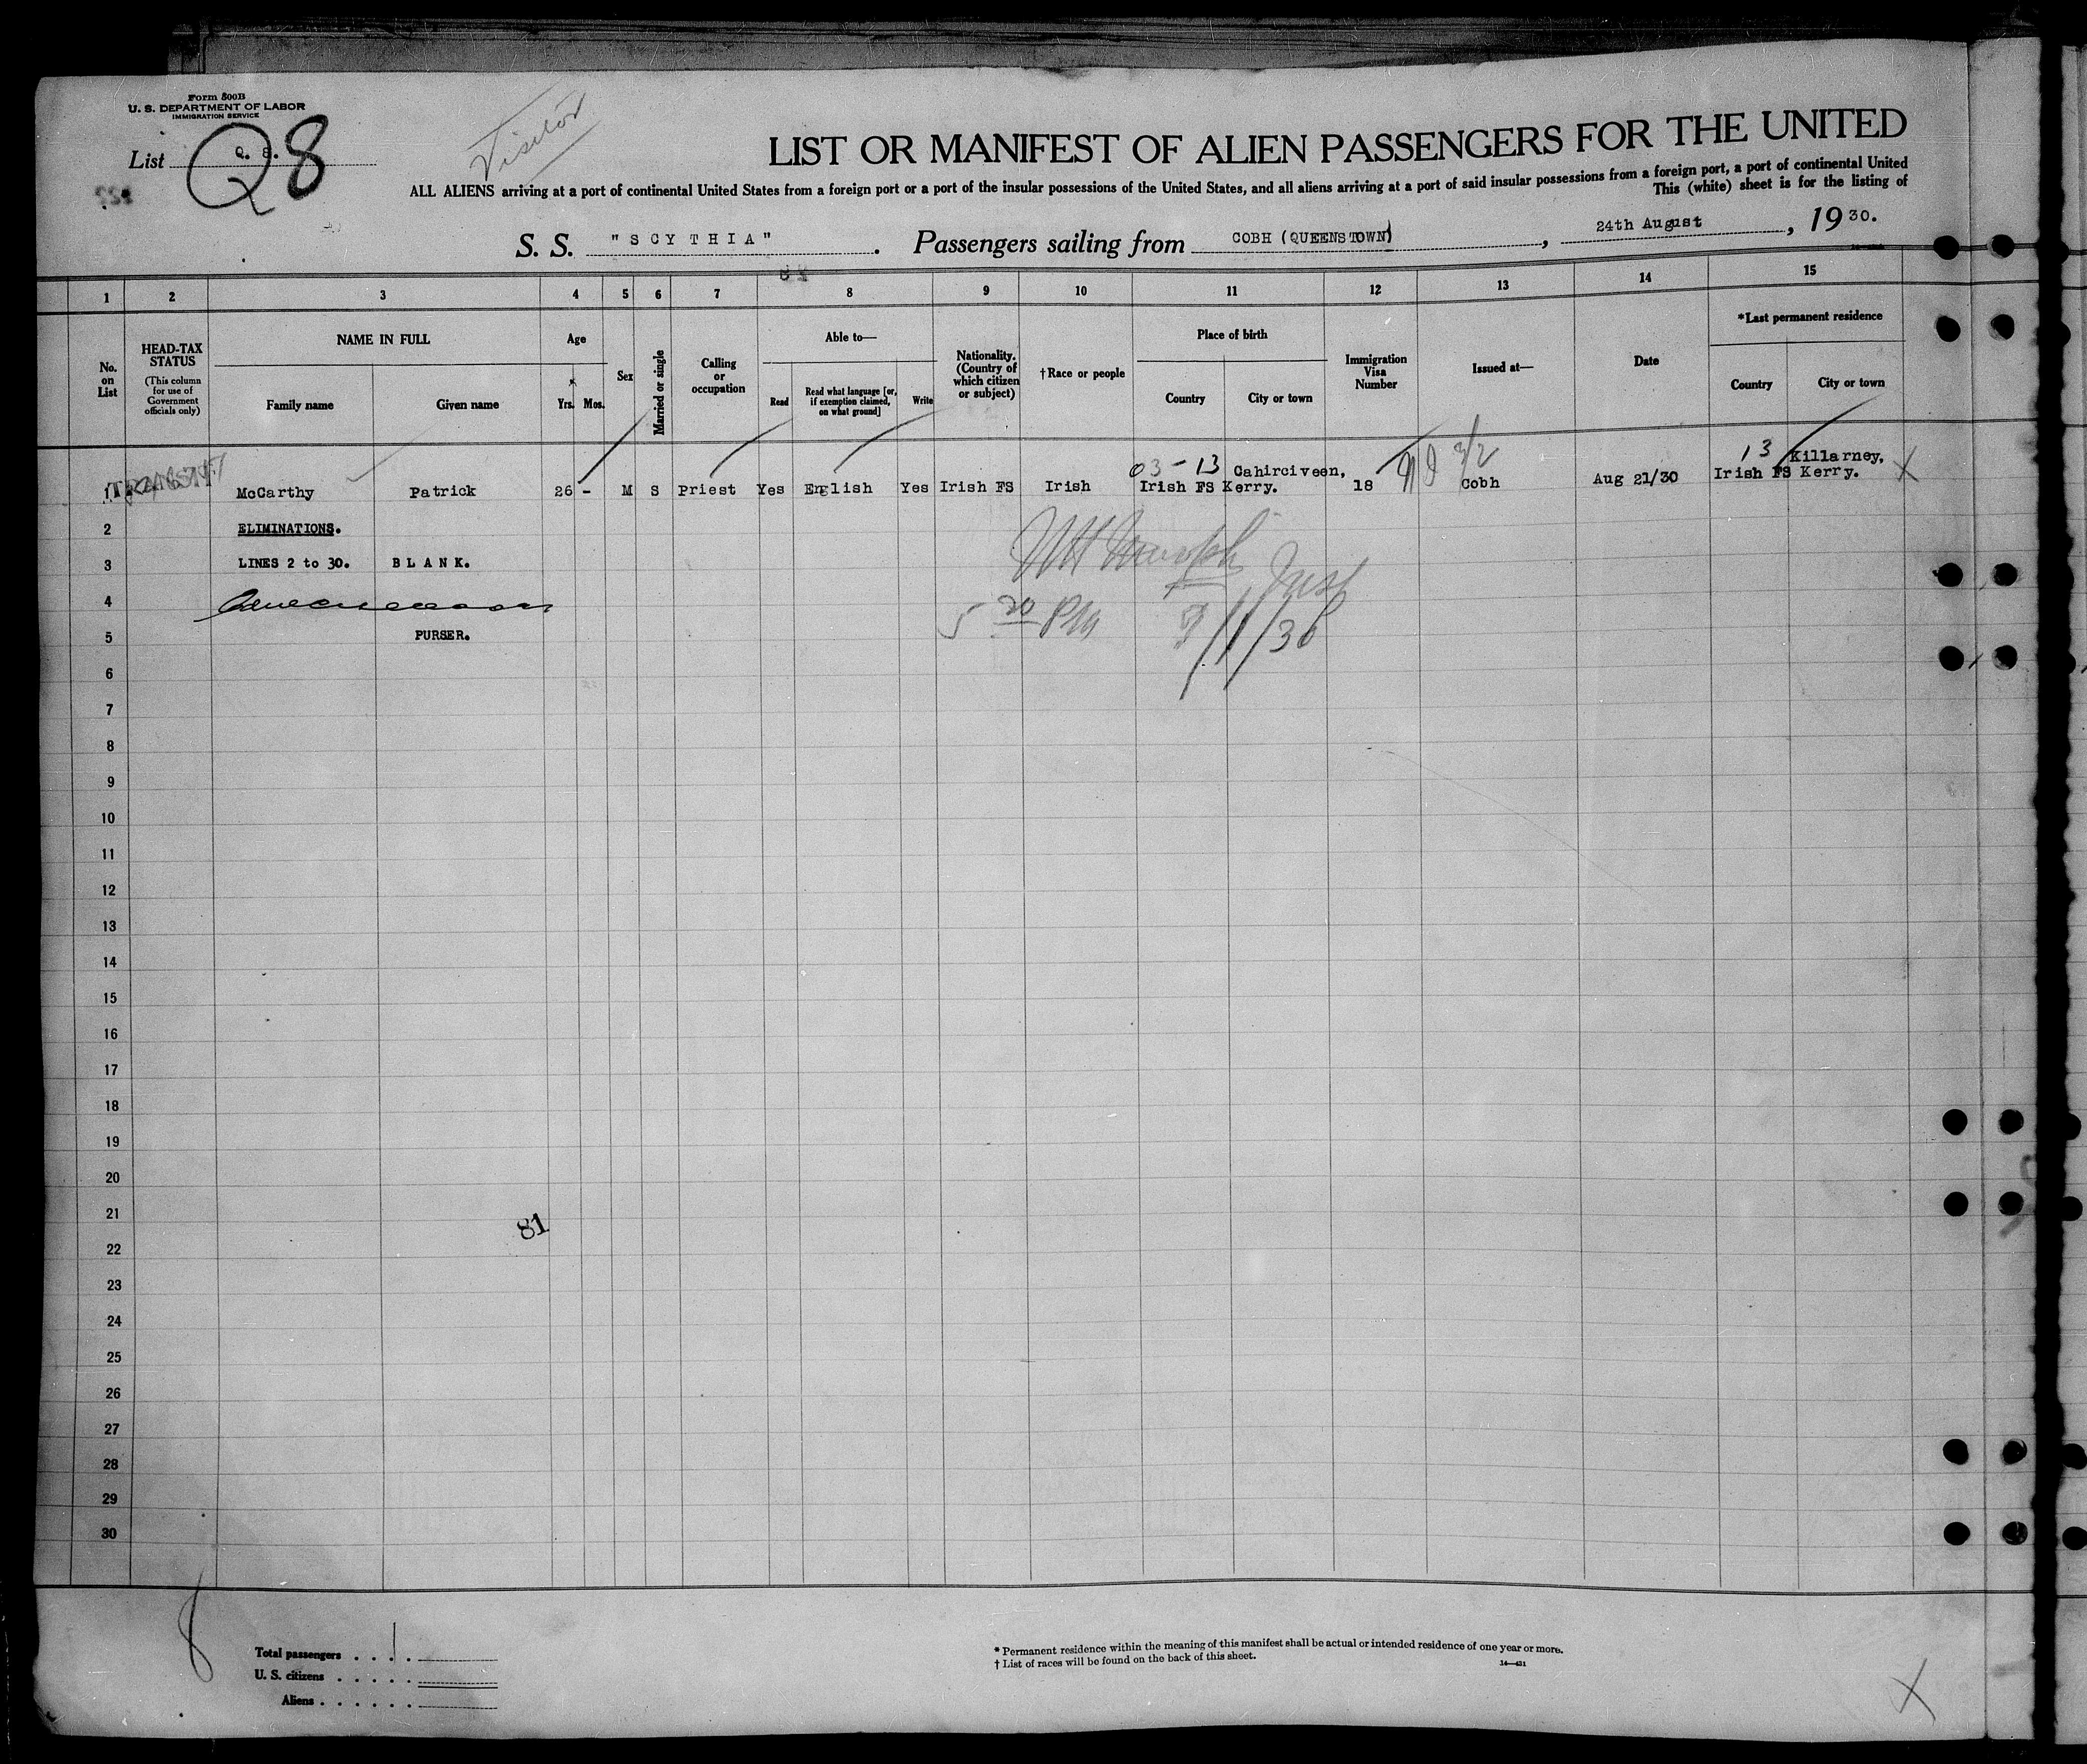 Form 800B
U. S. DEPARTMENT OF LABOR
IMMIGRATION SERVICE
List Q. 8.
Q8
Visitor
LIST OR MANIFEST OF ALIEN PASSENGERS FOR THE UNITED
ALL ALIENS arriving at a port of continental United States from a foreign port or a port of the insular possessions of the United States, and all aliens arriving at a port of said insular possessions from a foreign port, a port of continental United
This (white) sheet is for the listing of
S. S. "SCYTHIA" . Passengers sailing from COBH (QUEENSTOWN) , 24th August , 19 30.
1 2 3 4 5 6 7 8 9 10 11 12 13 14 15
No. on List
HEAD-TAX STATUS
(This column for use of Government officials only)
NAME IN FULL
Family name Given name
Age
Yrs. Mos.
Sex
Married or single
Calling or occupation
Able to—
Read Read what language [or, if exemption claimed, on what ground] Write
Nationality. (Country of which citizen or subject)
†Race or people
Place of birth
Country City or town
Immigration Visa Number
Issued at—
Date
*Last permanent residence
Country City or town
03-13 Cahirciveen, 13 Killarney,
1 TRANSIT McCarthy Patrick 26 - M S Priest Yes English Yes Irish FS Irish Irish FS Kerry. 18 Cobh Aug 21/30 Irish FS Kerry. X
2 ELIMINATIONS.
3 LINES 2 to 30. BLANK.
4
5 PURSER.
Insp
5 20 PM 9/1/30
6
7
8
9
10
11
12
13
14
15
16
17
18
19
20
21
81
22
23
24
25
26
27
28
29
30
8
Total passengers . . . . 1
U. S. citizens . . . . .
Aliens . . . . . .
* Permanent residence within the meaning of this manifest shall be actual or intended residence of one year or more.
† List of races will be found on the back of this sheet.
14—421
X